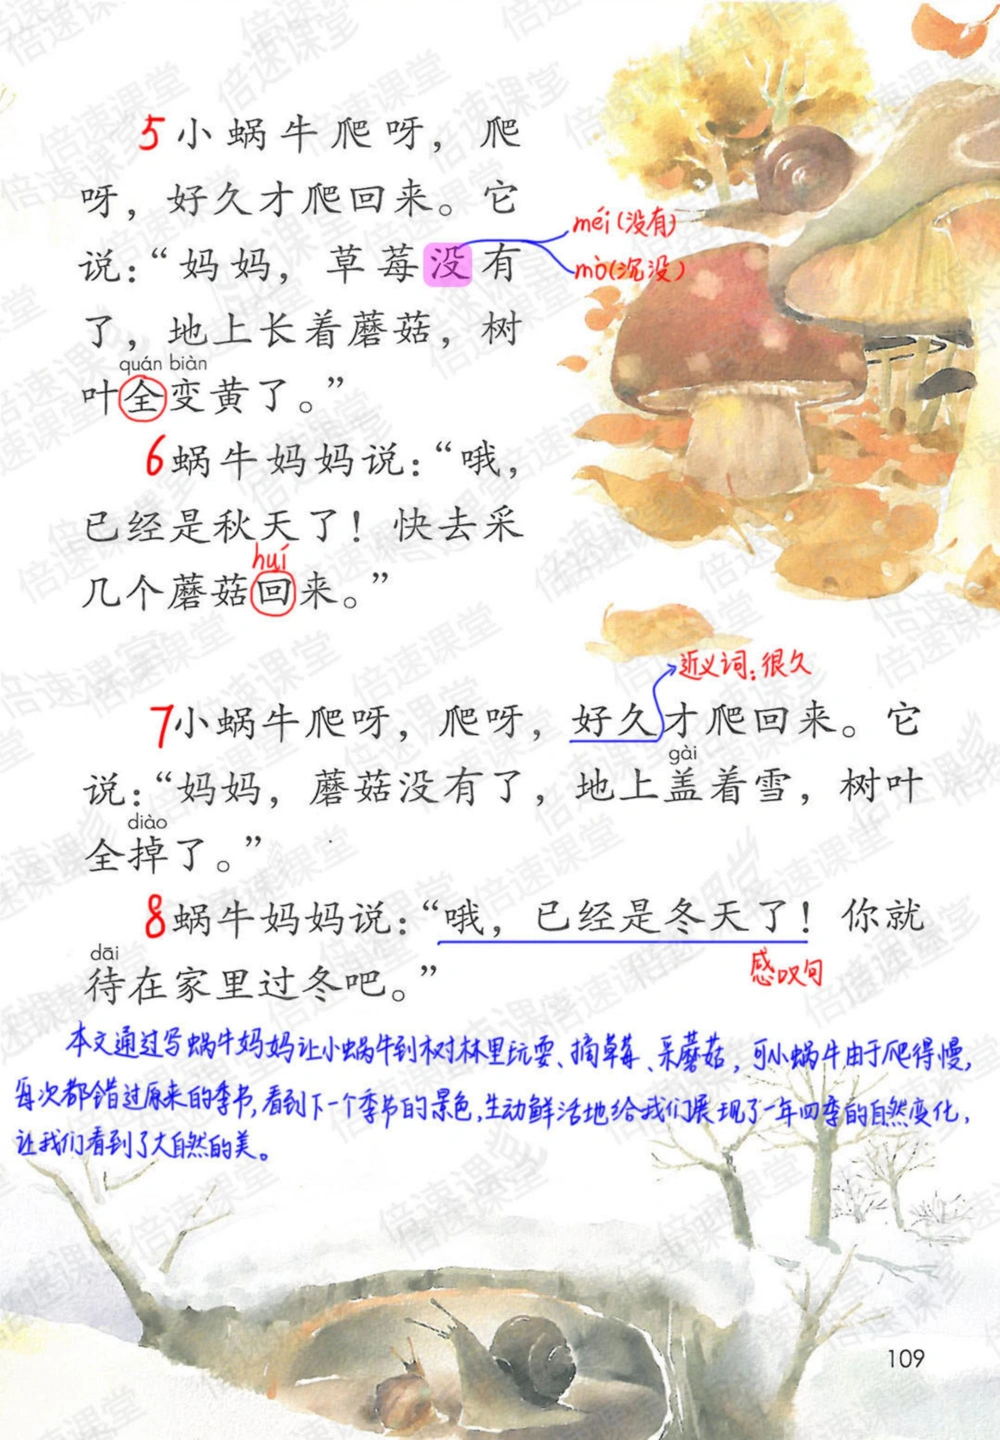 5小蜗牛爬呀，爬
呀，好久才爬回来。它
méi(没有)
说：“妈妈，草莓没有
mò(沉没)
了，地上长着蘑菇，树
quán biàn
叶全变黄了。”
6蜗牛妈妈说：“哦，
已经是秋天了！快去采
huí
几个蘑菇回来。”
近义词：很久
7小蜗牛爬呀，爬呀，好久才爬回来。它
gài
说：“妈妈，蘑菇没有了，地上盖着雪，树叶
diào
全掉了。”
8蜗牛妈妈说：“哦，已经是冬天了！你就
dāi
感叹句
待在家里过冬吧。”
本文通过写蜗牛妈妈让小蜗牛到树林里玩耍、摘草莓、采蘑菇，可小蜗牛由于爬得慢，
每次都错过原来的季节，看到下一个季节的景色，生动鲜活地给我们展现了一年四季的自然变化，
让我们看到了大自然的美。
109
倍速课堂